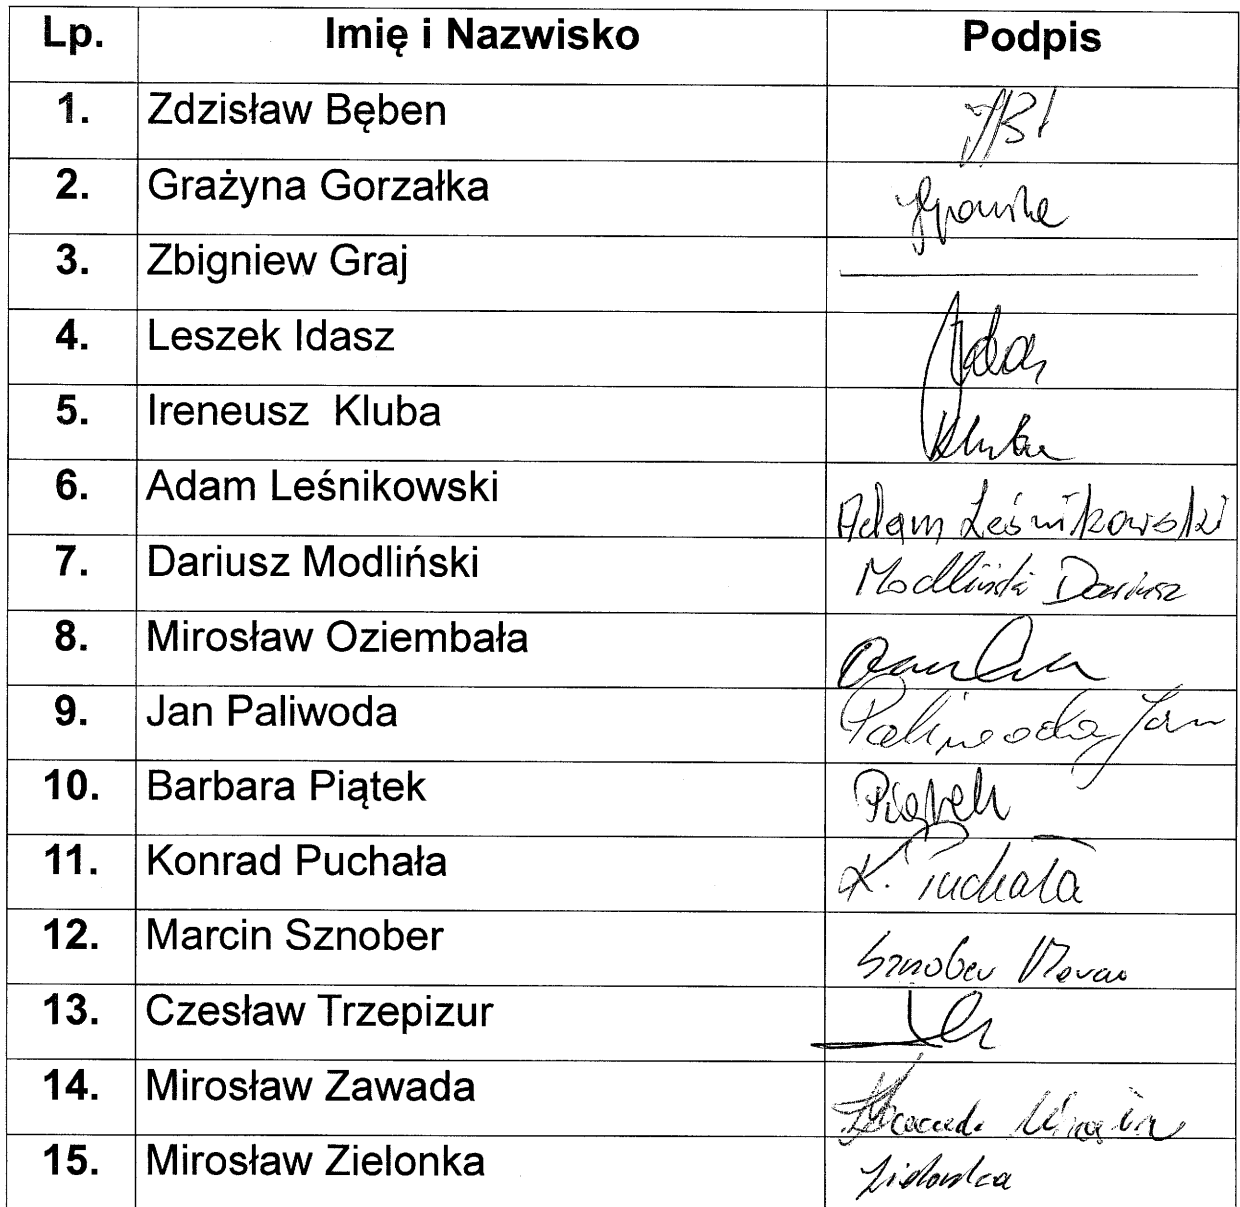 Lp. Imię i Nazwisko Podpis
1. Zdzisław Bęben
2. Grażyna Gorzałka
3. Zbigniew Graj
4. Leszek Idasz
5. Ireneusz Kluba Kluba
6. Adam Leśnikowski Adam Leśnikowski
7. Dariusz Modliński Modliński Dariusz
8. Mirosław Oziembała
9. Jan Paliwoda Paliwoda Jan
10. Barbara Piątek Piątek
11. Konrad Puchała K. Puchała
12. Marcin Sznober Sznober Marcin
13. Czesław Trzepizur
14. Mirosław Zawada
15. Mirosław Zielonka Zielonka